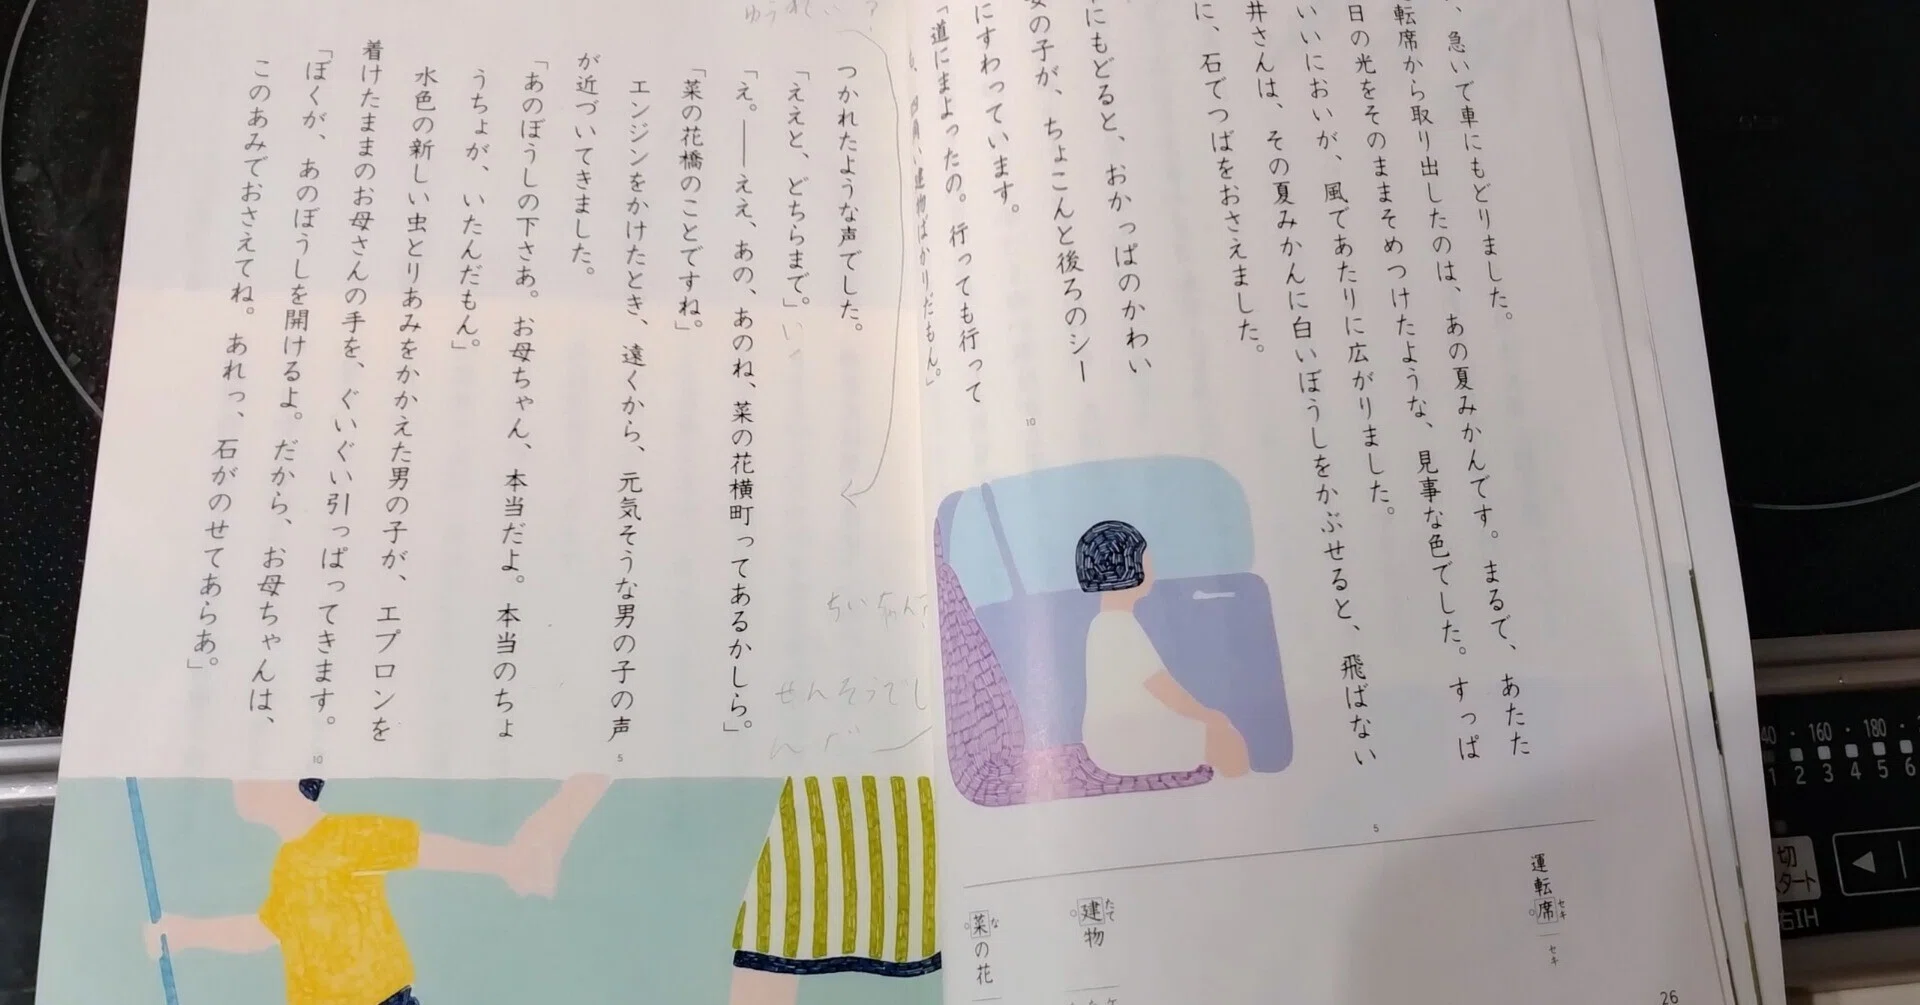 、急いで車にもどりました。
転席から取り出したのは、あの夏みかんです。まるで、あたた
日の光をそのままそめつけたような、見事な色でした。すっぱ
いいにおいが、風であたりに広がりました。
井さんは、その夏みかんに白いぼうしをかぶせると、飛ばない
に、石でつばをおさえました。
にもどると、おかっぱのかわい
女の子が、ちょこんと後ろのシー
にすわっています。
「道にまよったの。行っても行って
も、四角い建物ばかりだもん。」
つかれたような声でした。
「ええと、どちらまで。」
「え。――ええ、あの、あのね、菜の花横町ってあるかしら。」
「菜の花橋のことですね。」
エンジンをかけたとき、遠くから、元気そうな男の子の声
が近づいてきました。
「あのぼうしの下さあ。お母ちゃん、本当だよ。本当のちょ
うちょが、いたんだもん。」
水色の新しい虫とりあみをかかえた男の子が、エプロンを
着けたままのお母さんの手を、ぐいぐい引っぱってきます。
「ぼくが、あのぼうしを開けるよ。だから、お母ちゃんは、
このあみでおさえてね。あれっ、石がのせてあらあ。」
5
10
5
10
運転席 セキ
セキ
建物 たて
菜の花 な
26
ゆうれい？
ちいちゃん？
せんそうでし
んだ
160 180
1 2 3 4 5 6
切
スタート
右IH